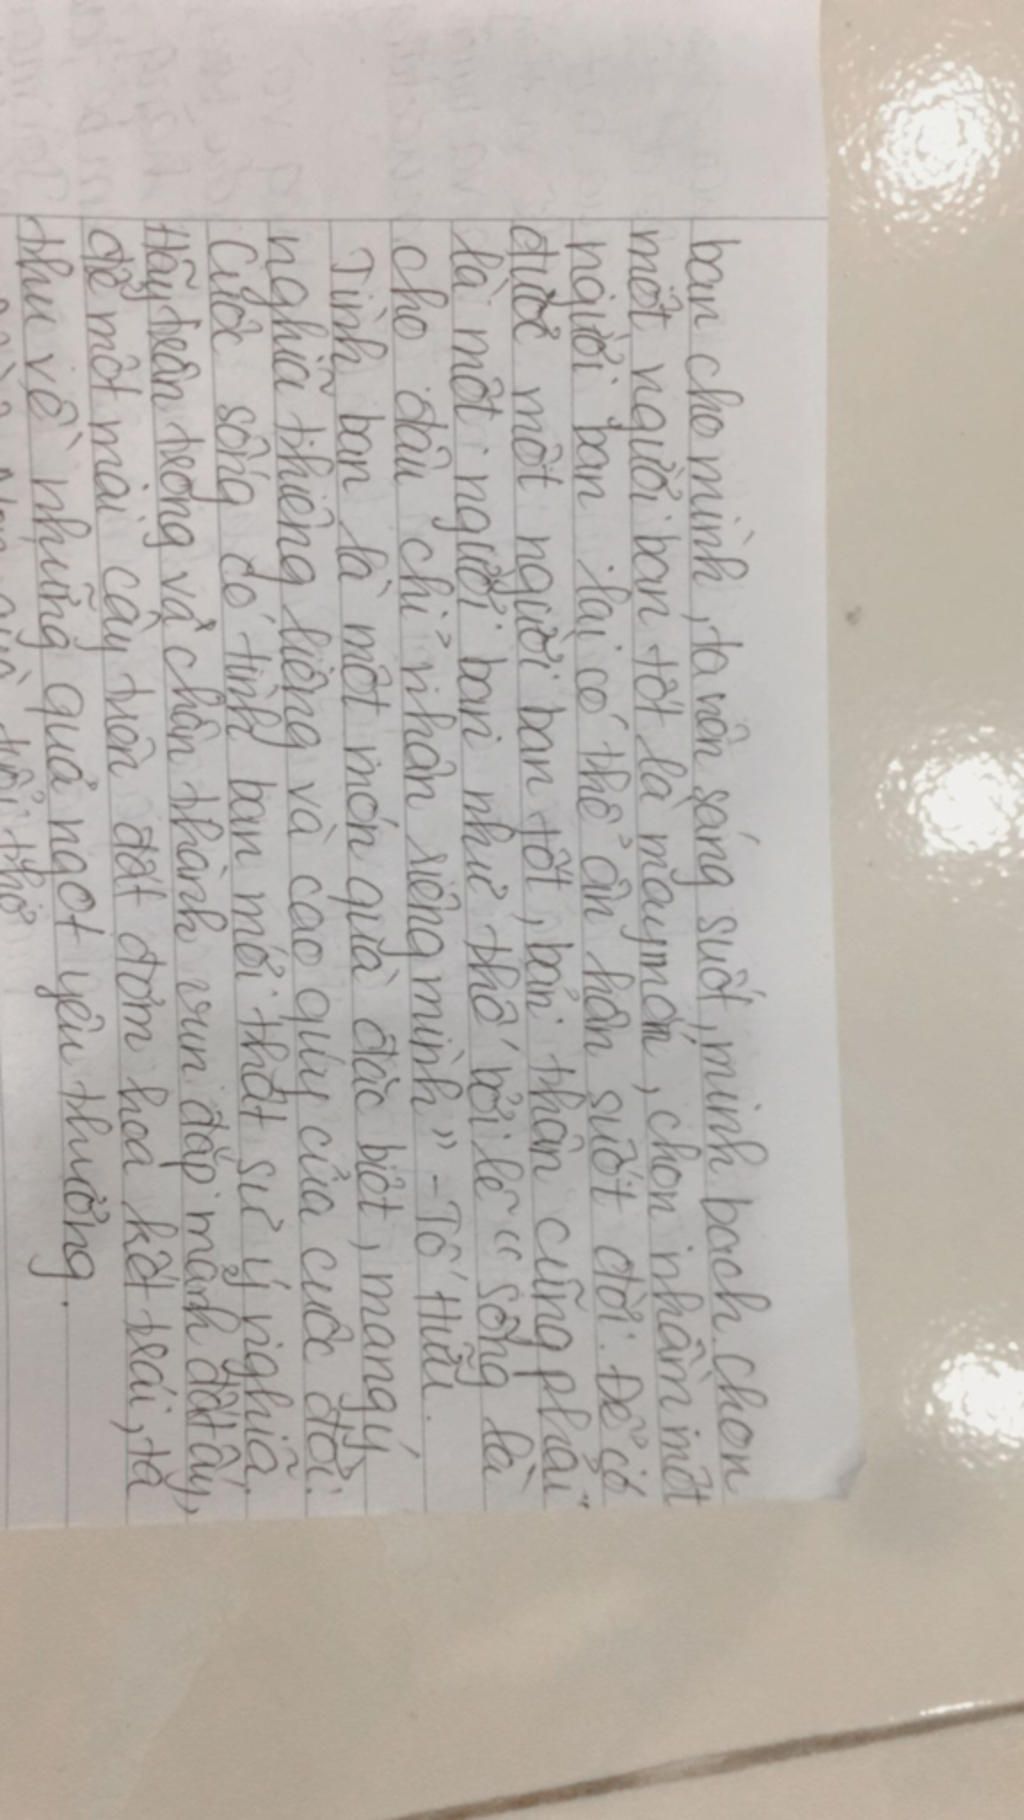 bạn cho mình, ta nên sáng suốt, minh bạch. chọn
một người bạn tốt là may mắn, chọn nhầm một
người bạn lại có thể ân hận suốt đời. Để có
được một người bạn tốt, bản thân cũng phải
là một người bạn như thế bởi lẽ "sống là
cho đâu chỉ nhận riêng mình" - Tố Hữu.
Tình bạn là một món quà đặc biệt, mang ý
nghĩa thiêng liêng và cao qúy của cuộc đời.
Cuộc sống có tình bạn mới thật sự ý nghĩa.
Hãy trân trọng và chân thành vun đắp mảnh đất ấy,
để một mai cây trên đất đơm hoa kết trái, ta
thu về những quả ngọt yêu thương.
tuổi thơ